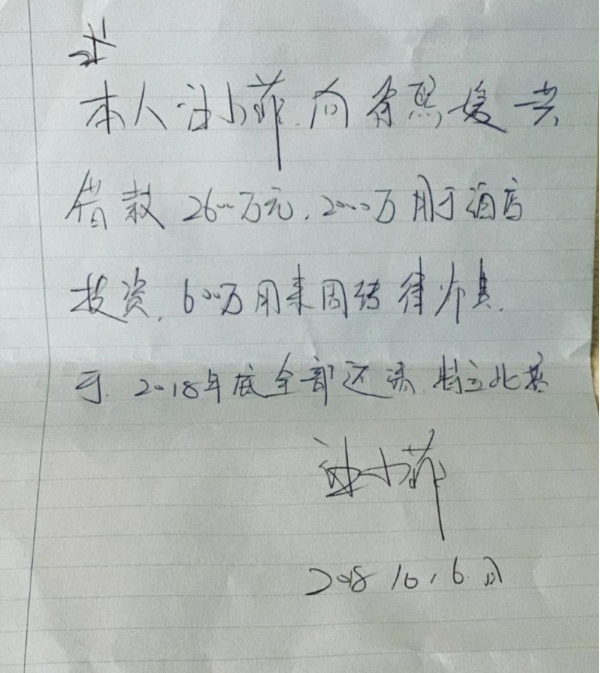 本人汪小菲.向徐熙媛共
借款2600万元.2000万用于酒店
投资.600万用来周转律师费.
于.2018年底全部还清.特立此据
汪小菲
2018 10.6.